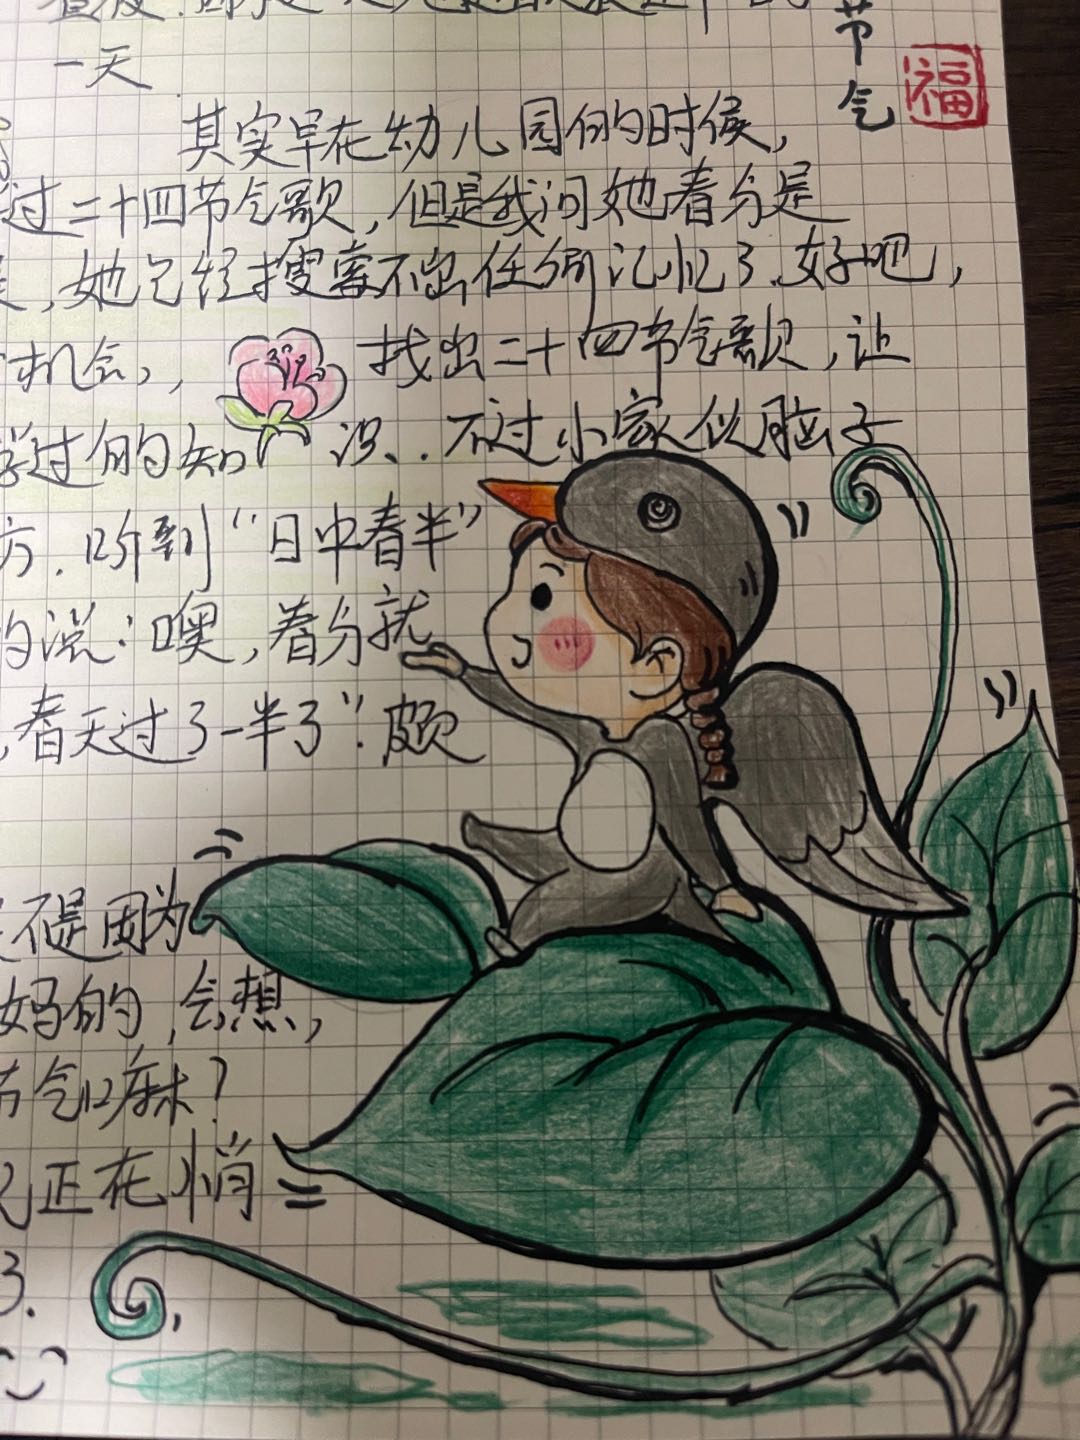 一天.
节气
福
其实早在幼儿园的时候,
过二十四节气歌,但是我问她春分是
,她已经搜索不出任何记忆了.好吧,
机会,, 找出二十四节气歌,让
学过的知识、.不过小家伙脑子
方.听到“日中春半”
的说:噢,春分就
,春天过了一半了”.颇
不是因为
妈的,会想,
节气口麻?
正在悄
3.